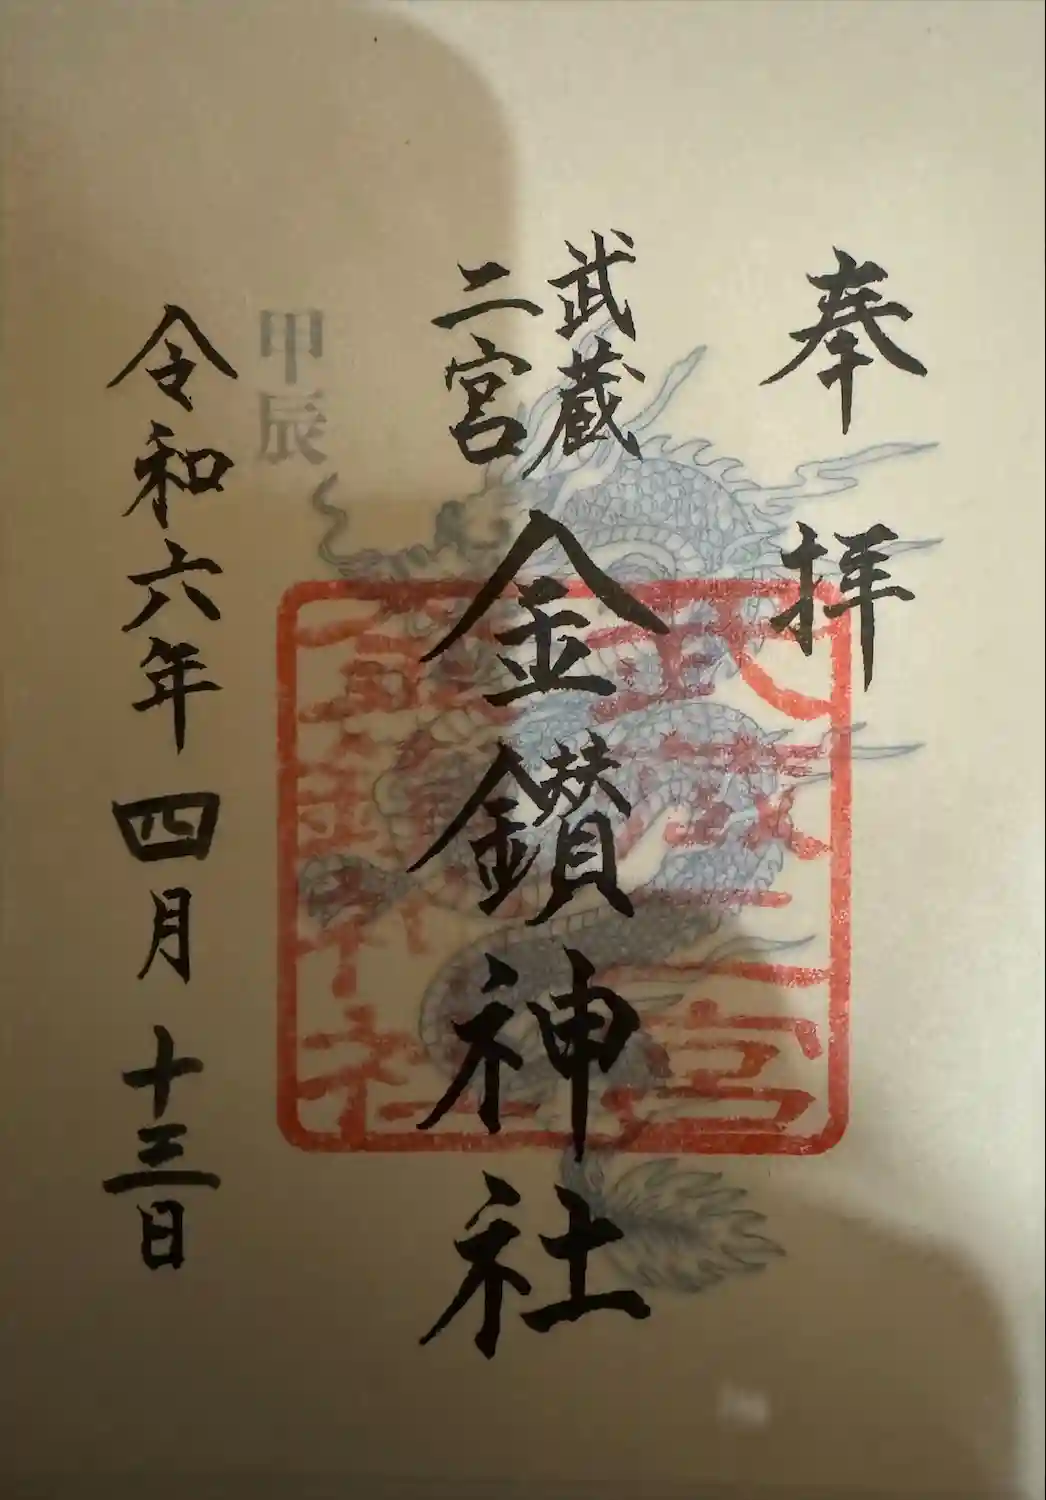 奉拝
武蔵
二宮
金鑚神社
甲辰
令和六年四月十三日
武蔵二宮
金鑚神社